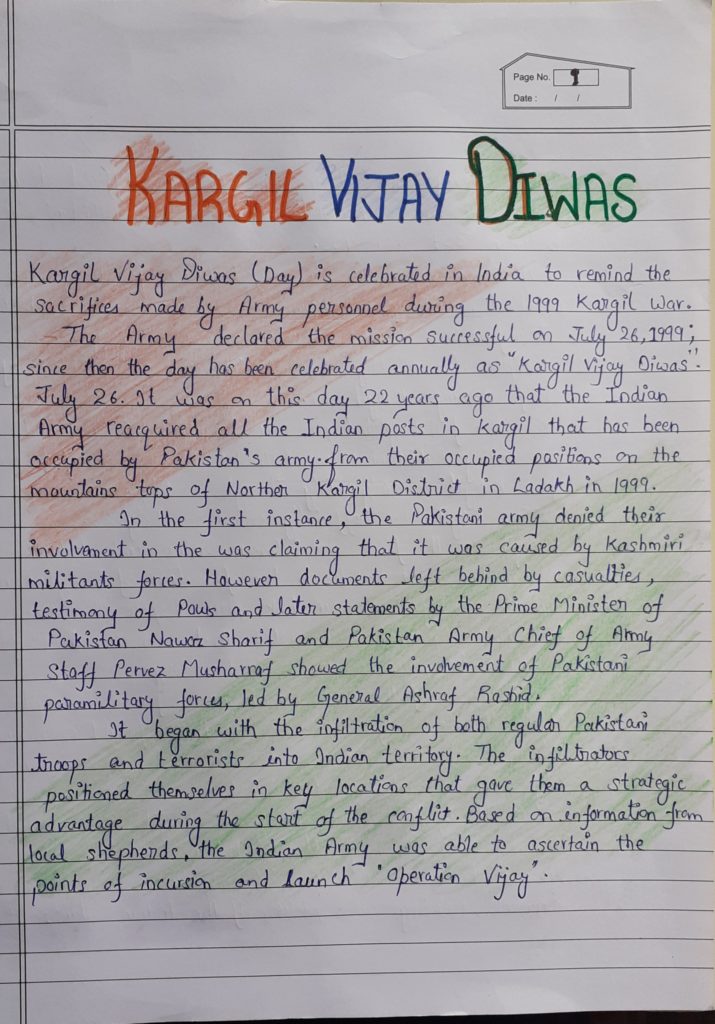 Page No. 1
Date : / /
KARGIL VIJAY DIWAS
Kargil Vijay Diwas (Day) is celebrated in India to remind the
sacrifices made by Army personnel during the 1999 Kargil War.
The Army declared the mission successful on July 26, 1999;
since then the day has been celebrated annually as "Kargil Vijay Diwas".
July 26. It was on this day 22 years ago that the Indian
Army reacquired all the Indian posts in Kargil that has been
occupied by Pakistan's army. from their occupied positions on the
mountains tops of Norther Kargil District in Ladakh in 1999.
In the first instance, the Pakistani army denied their
involvement in the was claiming that it was caused by Kashmiri
militants forces. However documents left behind by casualties,
testimony of POWs and later statements by the Prime Minister of
Pakistan Nawaz Sharif and Pakistan Army Chief of Army
Staff Pervez Musharraf showed the involvement of Pakistani
paramilitary forces, led by General Ashraf Rashid.
It began with the infiltration of both regular Pakistani
troops and terrorists into Indian territory. The infiltrators
positioned themselves in key locations that gave them a strategic
advantage during the start of the conflict. Based on information from
local shepherds, the Indian Army was able to ascertain the
points of incursion and launch "Operation Vijay".